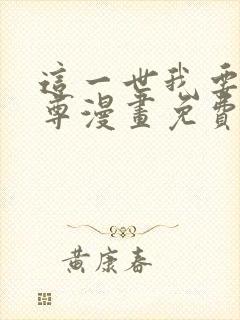 這一世我要
尊漫畫免費
黃康春